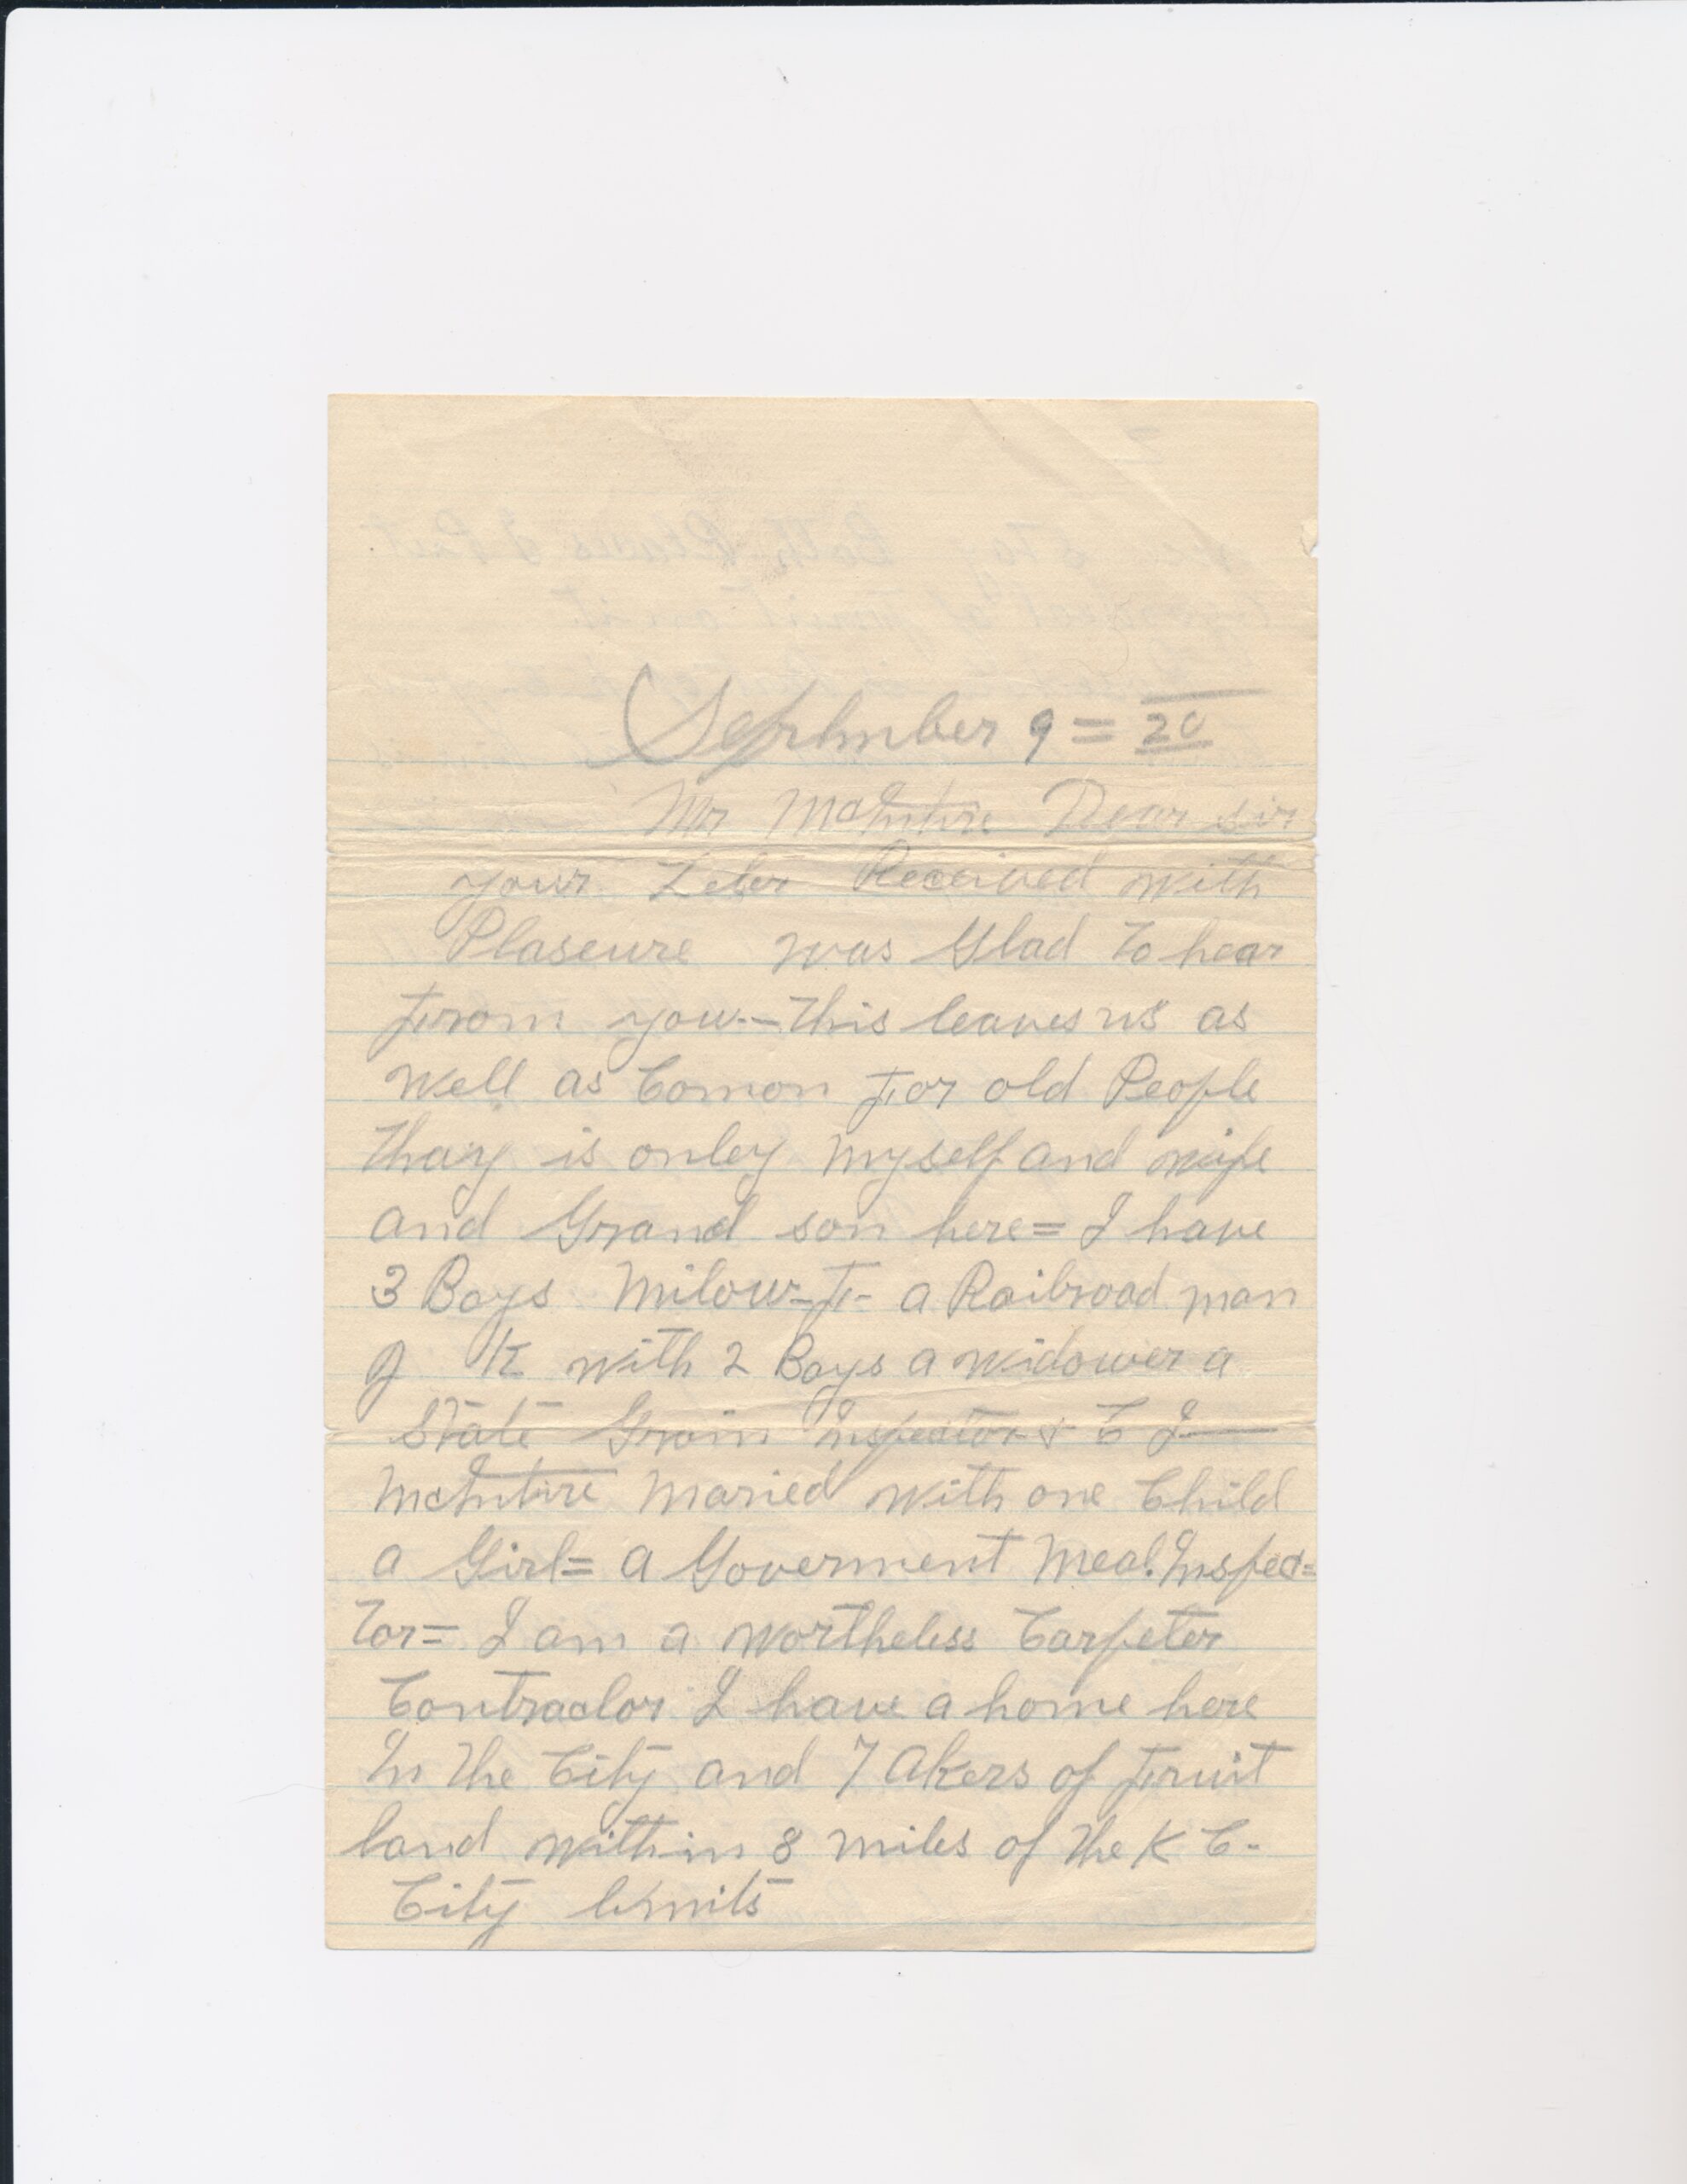 September 9 = 20
Mr McIntire Dear sir
your Leter Received with
Plaseure was Glad to hear
From you.- This leaves us as
well as Comon For old People
Thay is onley myself and wife
and Grand son here = I have
3 Boys Milow-F- a Railroad man
J K with 2 Boys a widower a
State Grain Inspector & C I
McIntire Maried with one Child
a Girl = a Goverment Meat Inspec=
tor = I am a wortheless Carpeter
Contractor I have a home here
In the City and 7 Akers of Fruit
land within 8 miles of the K C -
City limits